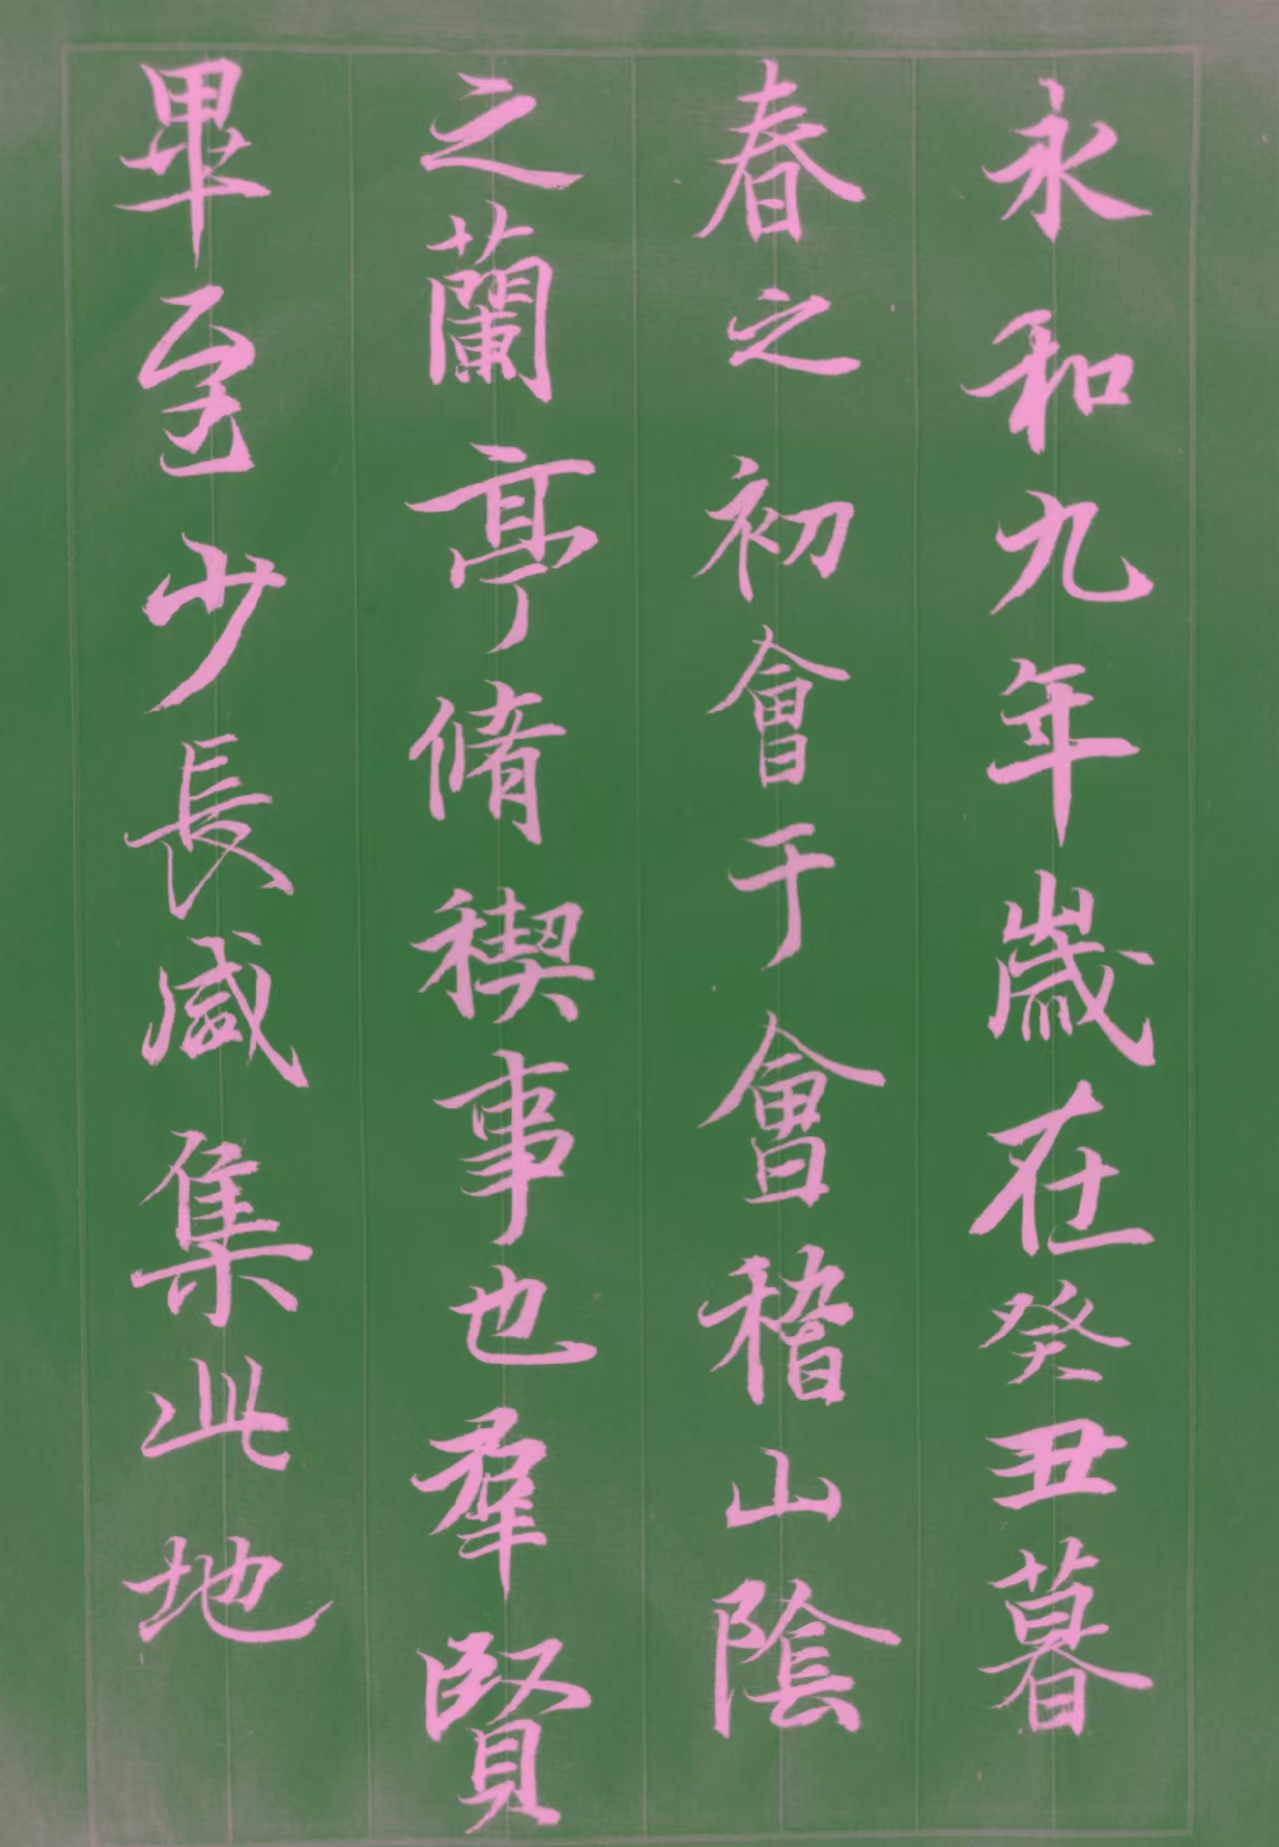 永和九年歲在癸丑暮
春之初會于會稽山陰
之蘭亭脩禊事也羣賢
畢至少長咸集此地